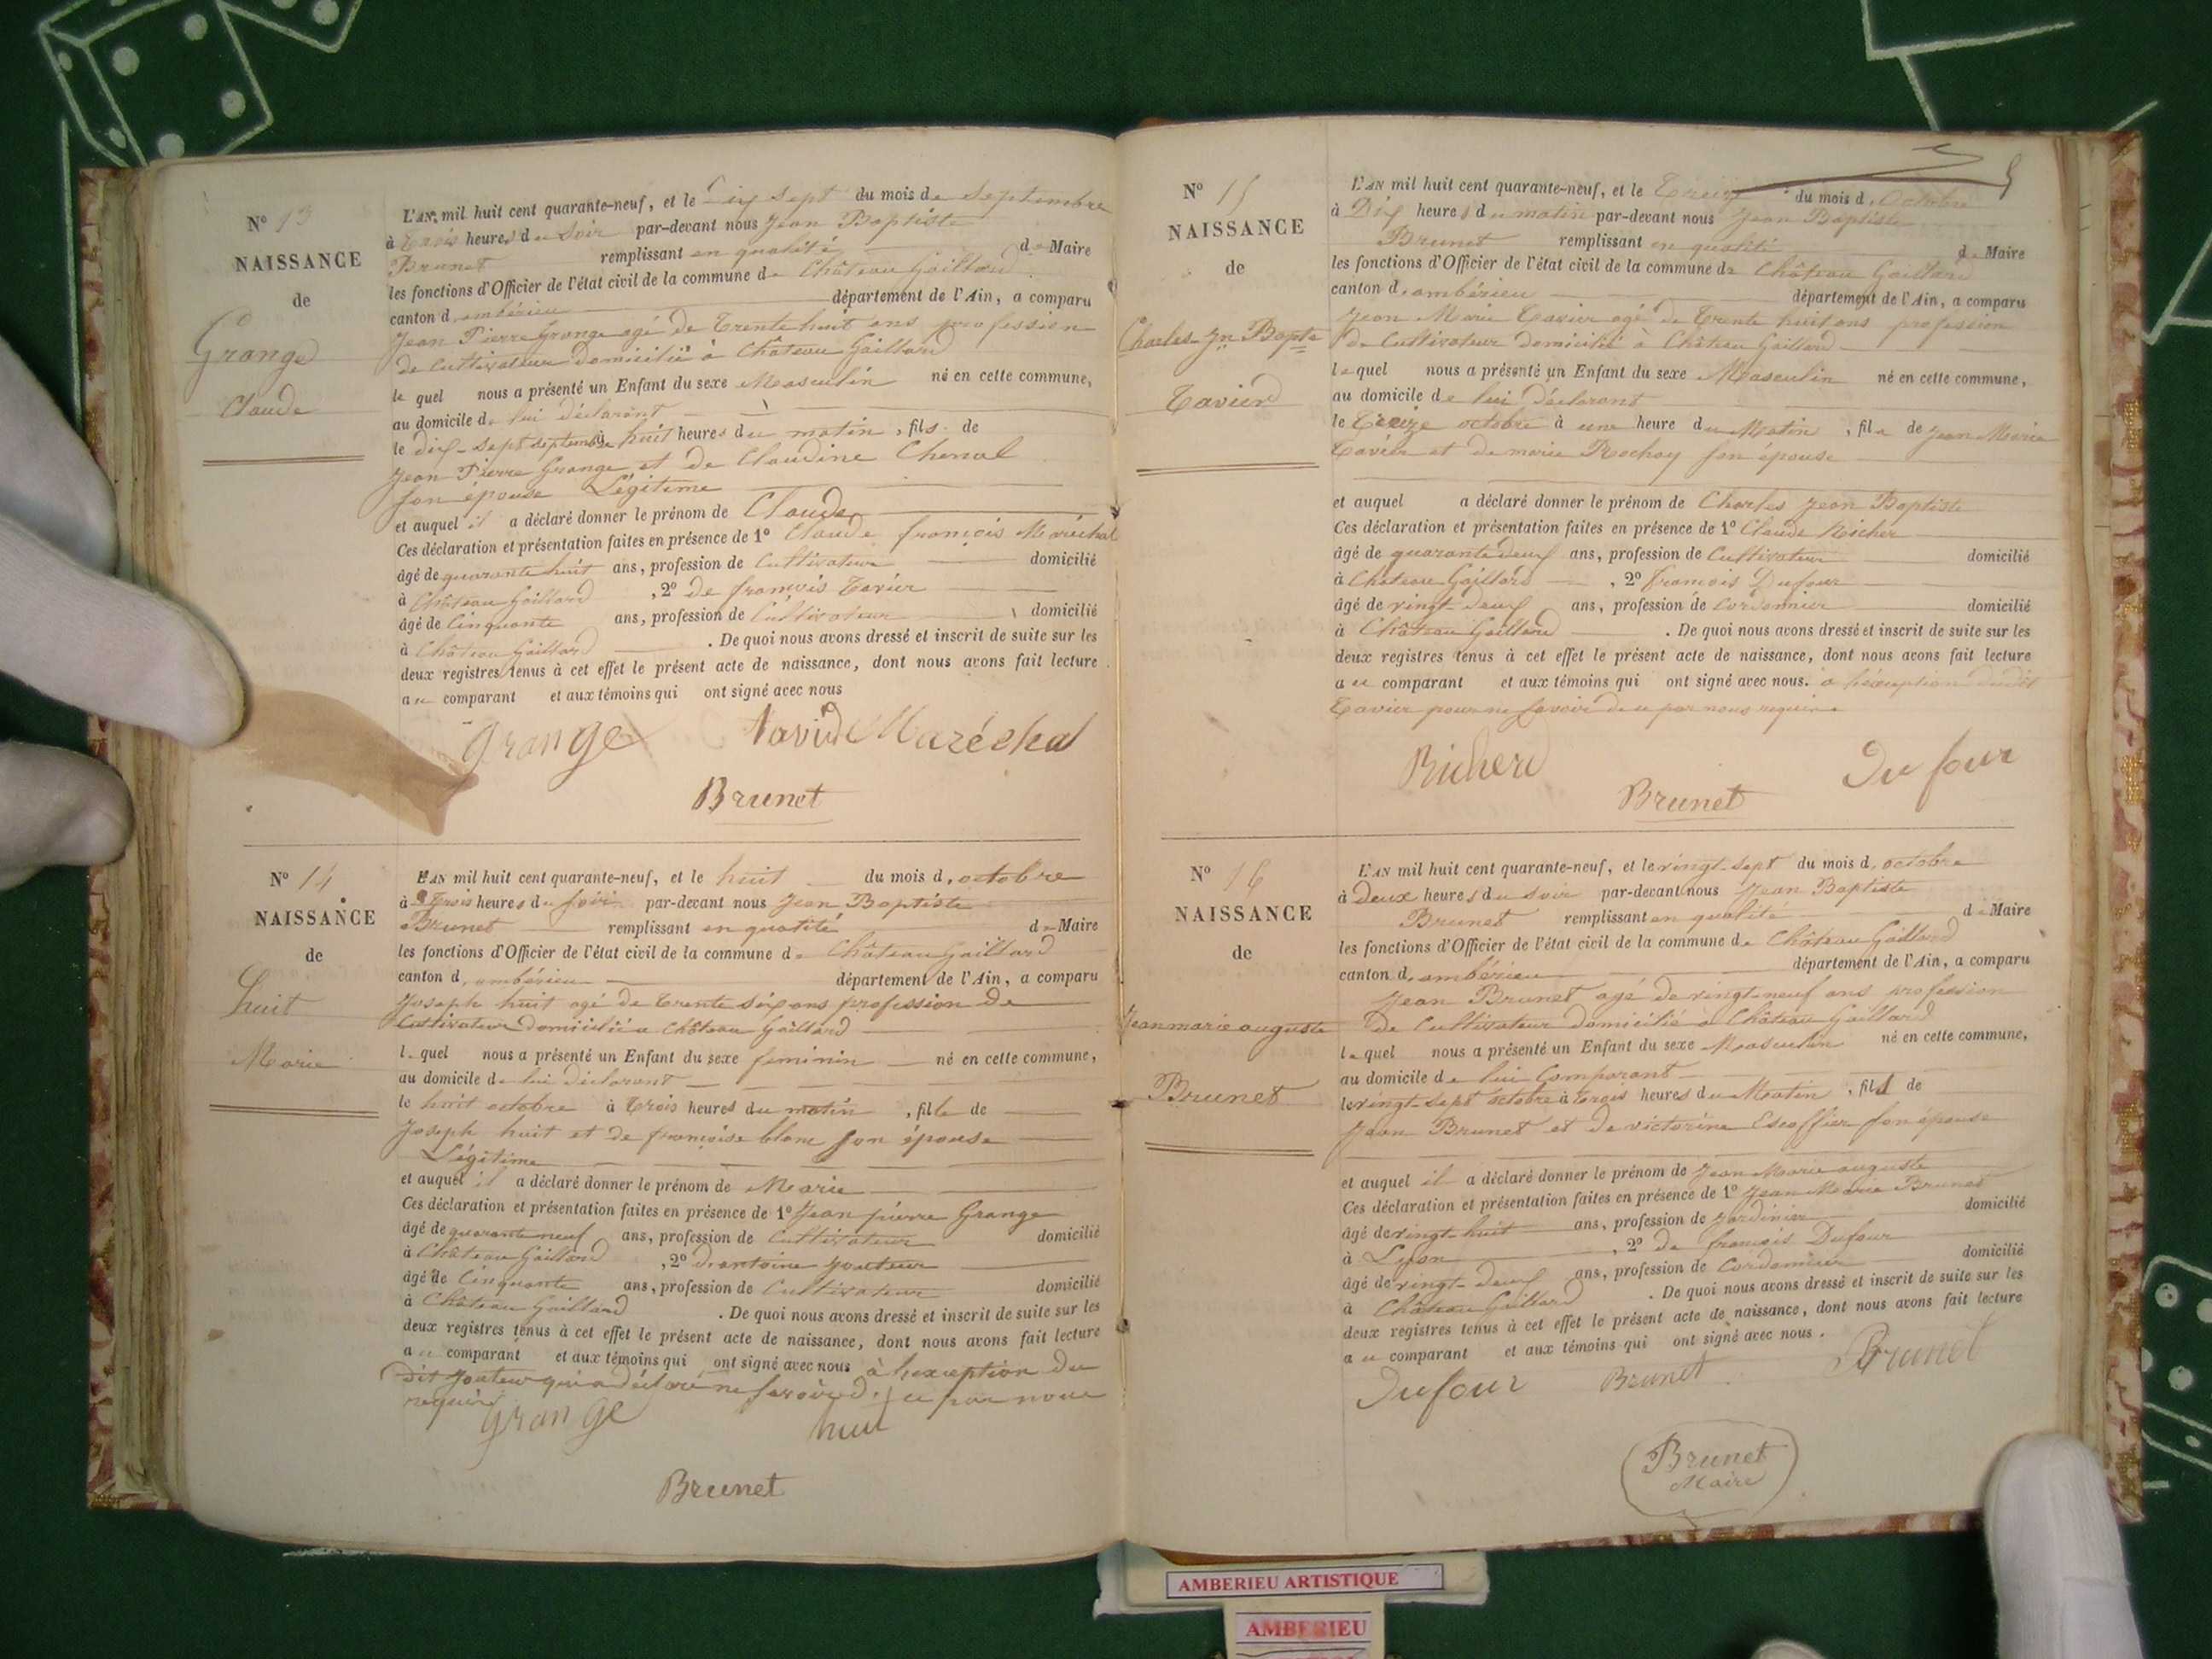 N° 13
NAISSANCE
de
Grange
Claude
L'AN mil huit cent quarante-neuf, et le Dix sept du mois de Septembre
à trois heures du Soir par-devant nous Jean Baptiste
Brunet remplissant en qualité de Maire
les fonctions d'Officier de l'état civil de la commune de Château Gaillard
canton d'ambérieu département de l'Ain, a comparu
Jean Pierre Grange agé de Trente huit ans profession
de Cultivateur domicilié à Château Gaillard
le quel nous a présenté un Enfant du sexe Masculin né en cette commune,
au domicile de lui déclarant
le dix-sept septembre à huit heures du matin, fils de
Jean Pierre Grange et de Claudine Chenal
son épouse Légitime
et auquel il a déclaré donner le prénom de Claude
Ces déclaration et présentation faites en présence de 1° Claude françois Maréchal
âgé de quarante huit ans, profession de Cultivateur domicilié
à Château Gaillard, 2° de françois Tavier
âgé de Cinquante ans, profession de Cultivateur domicilié
à Château Gaillard. De quoi nous avons dressé et inscrit de suite sur les
deux registres tenus à cet effet le présent acte de naissance, dont nous avons fait lecture
au comparant et aux témoins qui ont signé avec nous
Grange Maréchal
Brunet
N° 14
NAISSANCE
de
huit
Marie
L'AN mil huit cent quarante-neuf, et le huit du mois d'octobre
à Trois heures du soir par-devant nous Jean Baptiste
Brunet remplissant en qualité de Maire
les fonctions d'Officier de l'état civil de la commune de Château Gaillard
canton d'ambérieu département de l'Ain, a comparu
Joseph huit agé de Trente six ans profession de
Cultivateur domicilié a Château Gaillard
lequel nous a présenté un Enfant du sexe feminin né en cette commune,
au domicile de lui déclarant
le huit octobre à trois heures du matin, fille de
Joseph huit et de françoise blanc son épouse
Légitime
et auquel il a déclaré donner le prénom de Marie
Ces déclaration et présentation faites en présence de 1° Jean pierre Grange
âgé de quarante neuf ans, profession de Cultivateur domicilié
à Château Gaillard, 2° d'antoine Jouteur
âgé de Cinquante ans, profession de Cultivateur domicilié
à Château Gaillard. De quoi nous avons dressé et inscrit de suite sur les
deux registres tenus à cet effet le présent acte de naissance, dont nous avons fait lecture
au comparant et aux témoins qui ont signé avec nous à l'exception du
dit Jouteur qui a déclaré ne savoir de ce par nous
requis
Grange huit
Brunet
N° 15
NAISSANCE
de
Charles Jn Bapte
Tavier
L'AN mil huit cent quarante-neuf, et le Treize du mois d'Octobre
à Dix heures du matin par-devant nous Jean Baptiste
Brunet remplissant en qualité de Maire
les fonctions d'Officier de l'état civil de la commune de Château Gaillard
canton d'ambérieu département de l'Ain, a comparu
Jean Marie Tavier agé de Trente huit ans profession
de Cultivateur domicilié à Château Gaillard
lequel nous a présenté un Enfant du sexe Masculin né en cette commune,
au domicile de lui déclarant
le Treize octobre à une heure du Matin, fils de Jean Marie
Tavier et de marie Rochay son épouse
et auquel a déclaré donner le prénom de Charles Jean Baptiste
Ces déclaration et présentation faites en présence de 1° Claude Richer
âgé de quarante deux ans, profession de Cultivateur domicilié
à Château Gaillard, 2° françois Dufour
âgé de vingt-deux ans, profession de Cordonnier domicilié
à Château Gaillard. De quoi nous avons dressé et inscrit de suite sur les
deux registres tenus à cet effet le présent acte de naissance, dont nous avons fait lecture
au comparant et aux témoins qui ont signé avec nous. a l'exception dudit
Tavier pour ne savoir de ce par nous requis
Richerd Du four
Brunet
N° 16
NAISSANCE
de
Jean marie auguste
Brunet
L'AN mil huit cent quarante-neuf, et le vingt-sept du mois d'octobre
à Deux heures du soir par-devant nous Jean Baptiste
Brunet remplissant en qualité de Maire
les fonctions d'Officier de l'état civil de la commune de Château Gaillard
canton d'ambérieu département de l'Ain, a comparu
Jean Brunet agé de vingt-neuf ans profession
de Cultivateur domicilié à Château Gaillard
lequel nous a présenté un Enfant du sexe Masculin né en cette commune,
au domicile de lui Comparant
le vingt-sept octobre à trois heures du Matin, fils de
Jean Brunet et de victorine Escoffier son épouse
et auquel il a déclaré donner le prénom de Jean Marie auguste
Ces déclaration et présentation faites en présence de 1° Jean Marie Brunet
âgé de vingt-huit ans, profession de Jardinier domicilié
à Lyon, 2° de françois Dufour
âgé de vingt-deux ans, profession de Cordonnier domicilié
à Château Gaillard. De quoi nous avons dressé et inscrit de suite sur les
deux registres tenus à cet effet le présent acte de naissance, dont nous avons fait lecture
au comparant et aux témoins qui ont signé avec nous.
Dufour Brunet Brunet
Brunet
Maire
AMBERIEU ARTISTIQUE
AMBERIEU